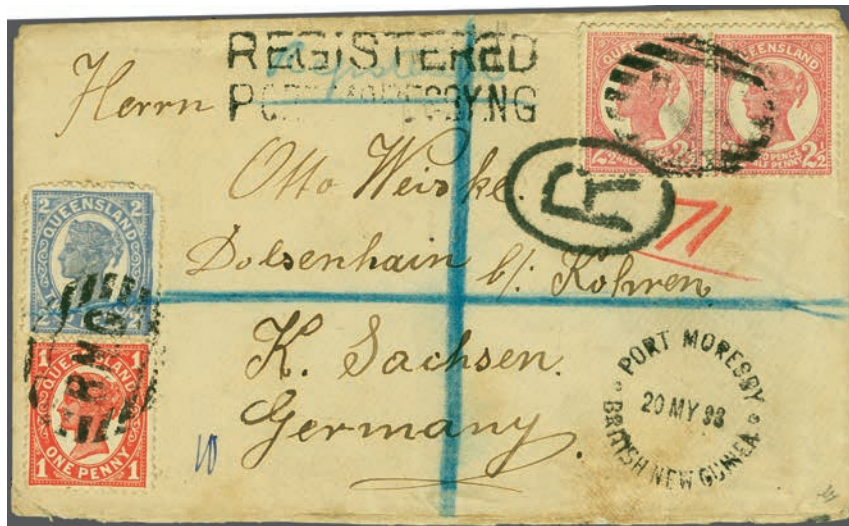 REGISTERED
Registered
PORT MORESBY.NG
Herrn
Otto Weiske.
Dolsenhain b/: Kohren
K. Sachsen.
Germany
R
71
QUEENSLAND
2½ 2½
QUEENSLAND
TWO PENCE
HALF PENNY
2½
2 2
QUEENSLAND
2
1 1
QUEENSLAND
ONE PENNY
1 1
10
PORT MORESBY
20 MY 98
BRITISH NEW GUINEA